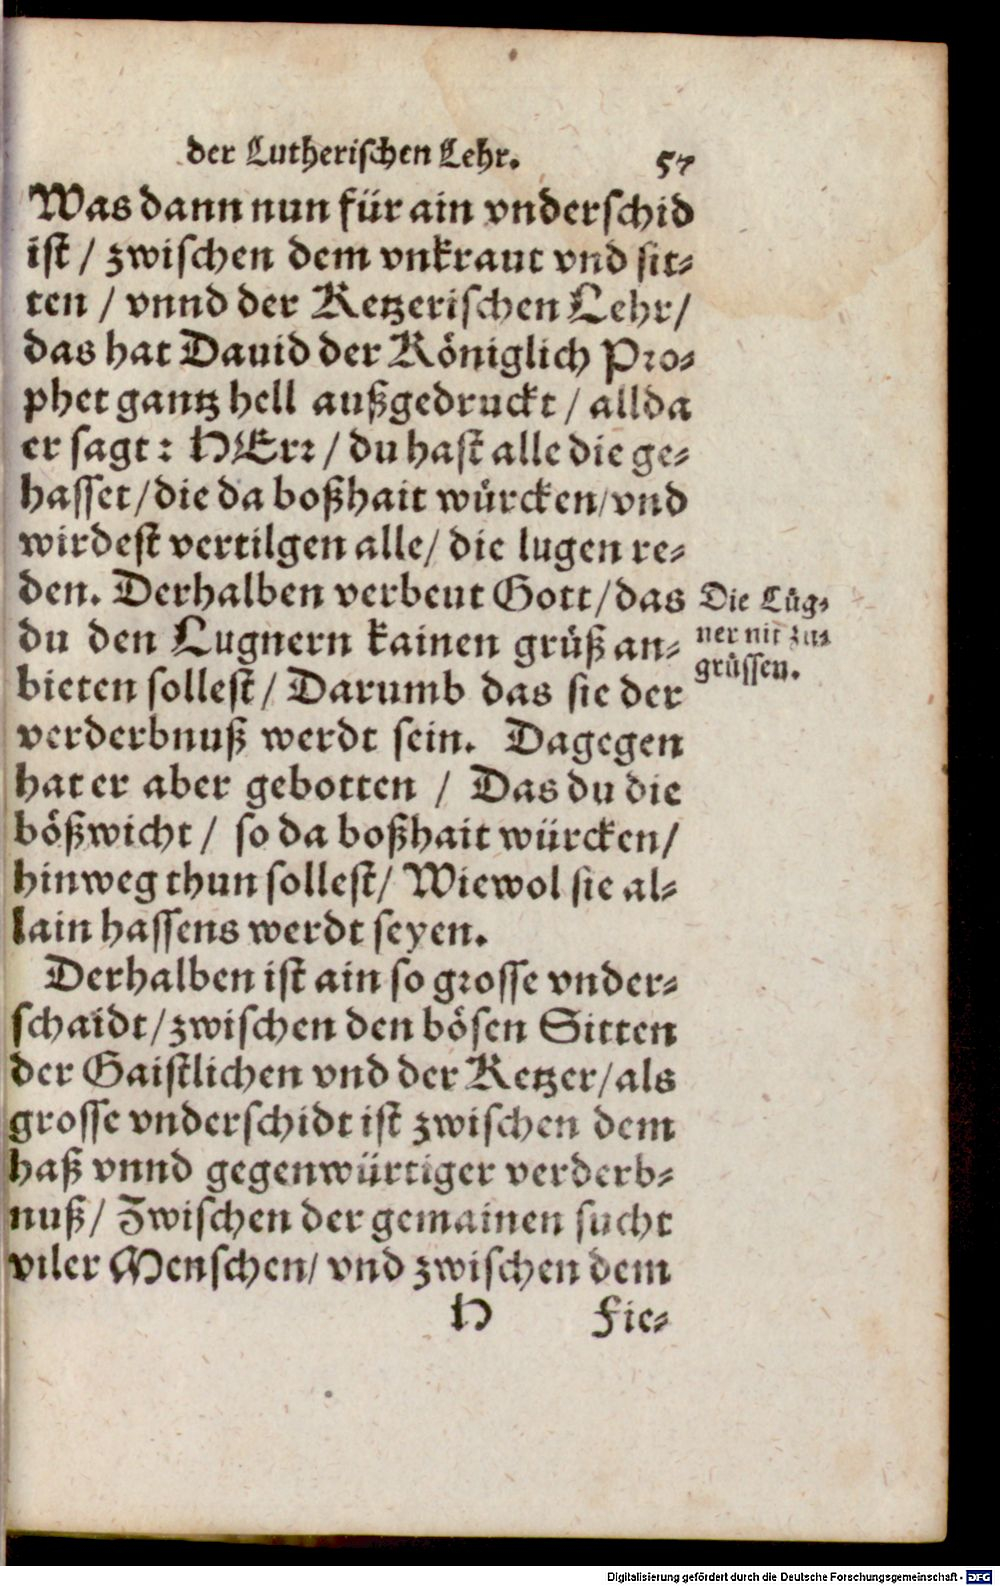 der Lutherischen Lehr. 57
Was dann nun für ain vnderschid
ist / zwischen dem vnkraut vnd sit-
ten / vnnd der Ketzerischen Lehr/
das hat Dauid der Königlich Pro-
phet gantz hell außgedruckt / allda
er sagt: HErr / du hast alle die ge-
hasset / die da boßhait würcken / vnd
wirdest vertilgen alle / die lugen re-
den. Derhalben verbeut Gott / das
du den Lugnern kainen grüß an-
bieten sollest / Darumb das sie der
verderbnuß werdt sein. Dagegen
hat er aber gebotten / Das du die
bößwicht / so da boßhait würcken /
hinweg thun sollest / Wiewol sie al-
lain hassens werdt seyen.
Derhalben ist ain so grosse vnder-
schaidt / zwischen den bösen Sitten
der Gaistlichen vnd der Ketzer / als
grosse vnderschidt ist zwischen dem
haß vnnd gegenwürtiger verderb-
nuß / Zwischen der gemainen sucht
viler Menschen / vnd zwischen dem
H Fie-
Die Lüg-
ner nit zu-
grüssen.
Digitalisierung gefördert durch die Deutsche Forschungsgemeinschaft - DFG